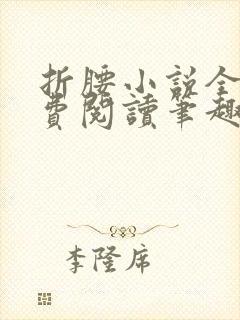 折腰小説全
費閱讀筆趣
李隆席